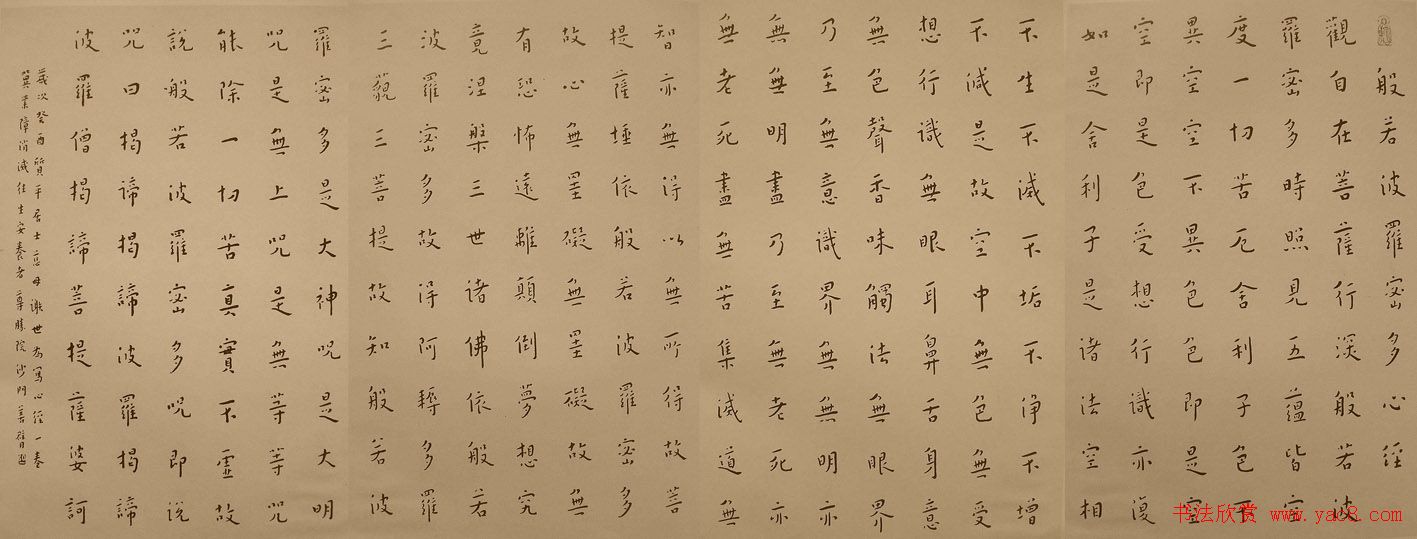 般若波羅密多心經
觀自在菩薩行深般若波
羅密多時照見五蘊皆空
度一切苦厄舍利子色不
異空空不異色色即是空
空即是色受想行識亦復
如是舍利子是諸法空相
不生不滅不垢不淨不增
不減是故空中無色無受
想行識無眼耳鼻舌身意
無色聲香味觸法無眼界
乃至無意識界無無明亦
無無明盡乃至無老死亦
無老死盡無苦集滅道無
智亦無得以無所得故菩
提薩埵依般若波羅密多
故心無罣礙無罣礙故無
有恐怖遠離顛倒夢想究
竟涅槃三世諸佛依般若
波羅密多故得阿耨多羅
三藐三菩提故知般若波
羅密多是大神咒是大明
咒是無上咒是無等等咒
能除一切苦真實不虛故
說般若波羅密多咒即說
咒曰揭諦揭諦波羅揭諦
波羅僧揭諦菩提薩婆訶
歲次癸酉質平居士慈母謝世為寫心經一卷
冀業障消滅往生安養者尊勝院沙門善臂
书法欣赏 www.yac8.com